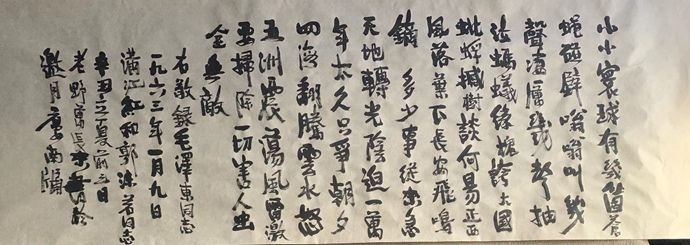 小小寰球有幾箇蒼
蝇碰壁嗡嗡叫幾
聲凄厲幾声抽
泣螞蟻緣槐誇大國
蚍蜉撼樹談何易正西
風落葉下長安飛鳴
鏑 多少事從来急
天地轉光陰迫一萬
年太久只爭朝夕
四海翻騰雲水怒
五洲震蕩風雷激
要掃除一切害人虫
全無敵
右敬錄毛澤東同志
一九六三年一月九日
滿江紅和郭沫若同志
辛丑立夏前三日
老野
邀月廬南牖